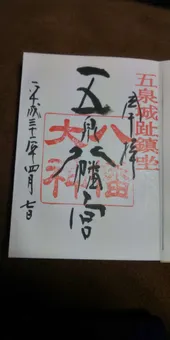 五泉城趾鎮坐
奉拝
五泉八幡宮
八幡大神
平成三十一年四月七日